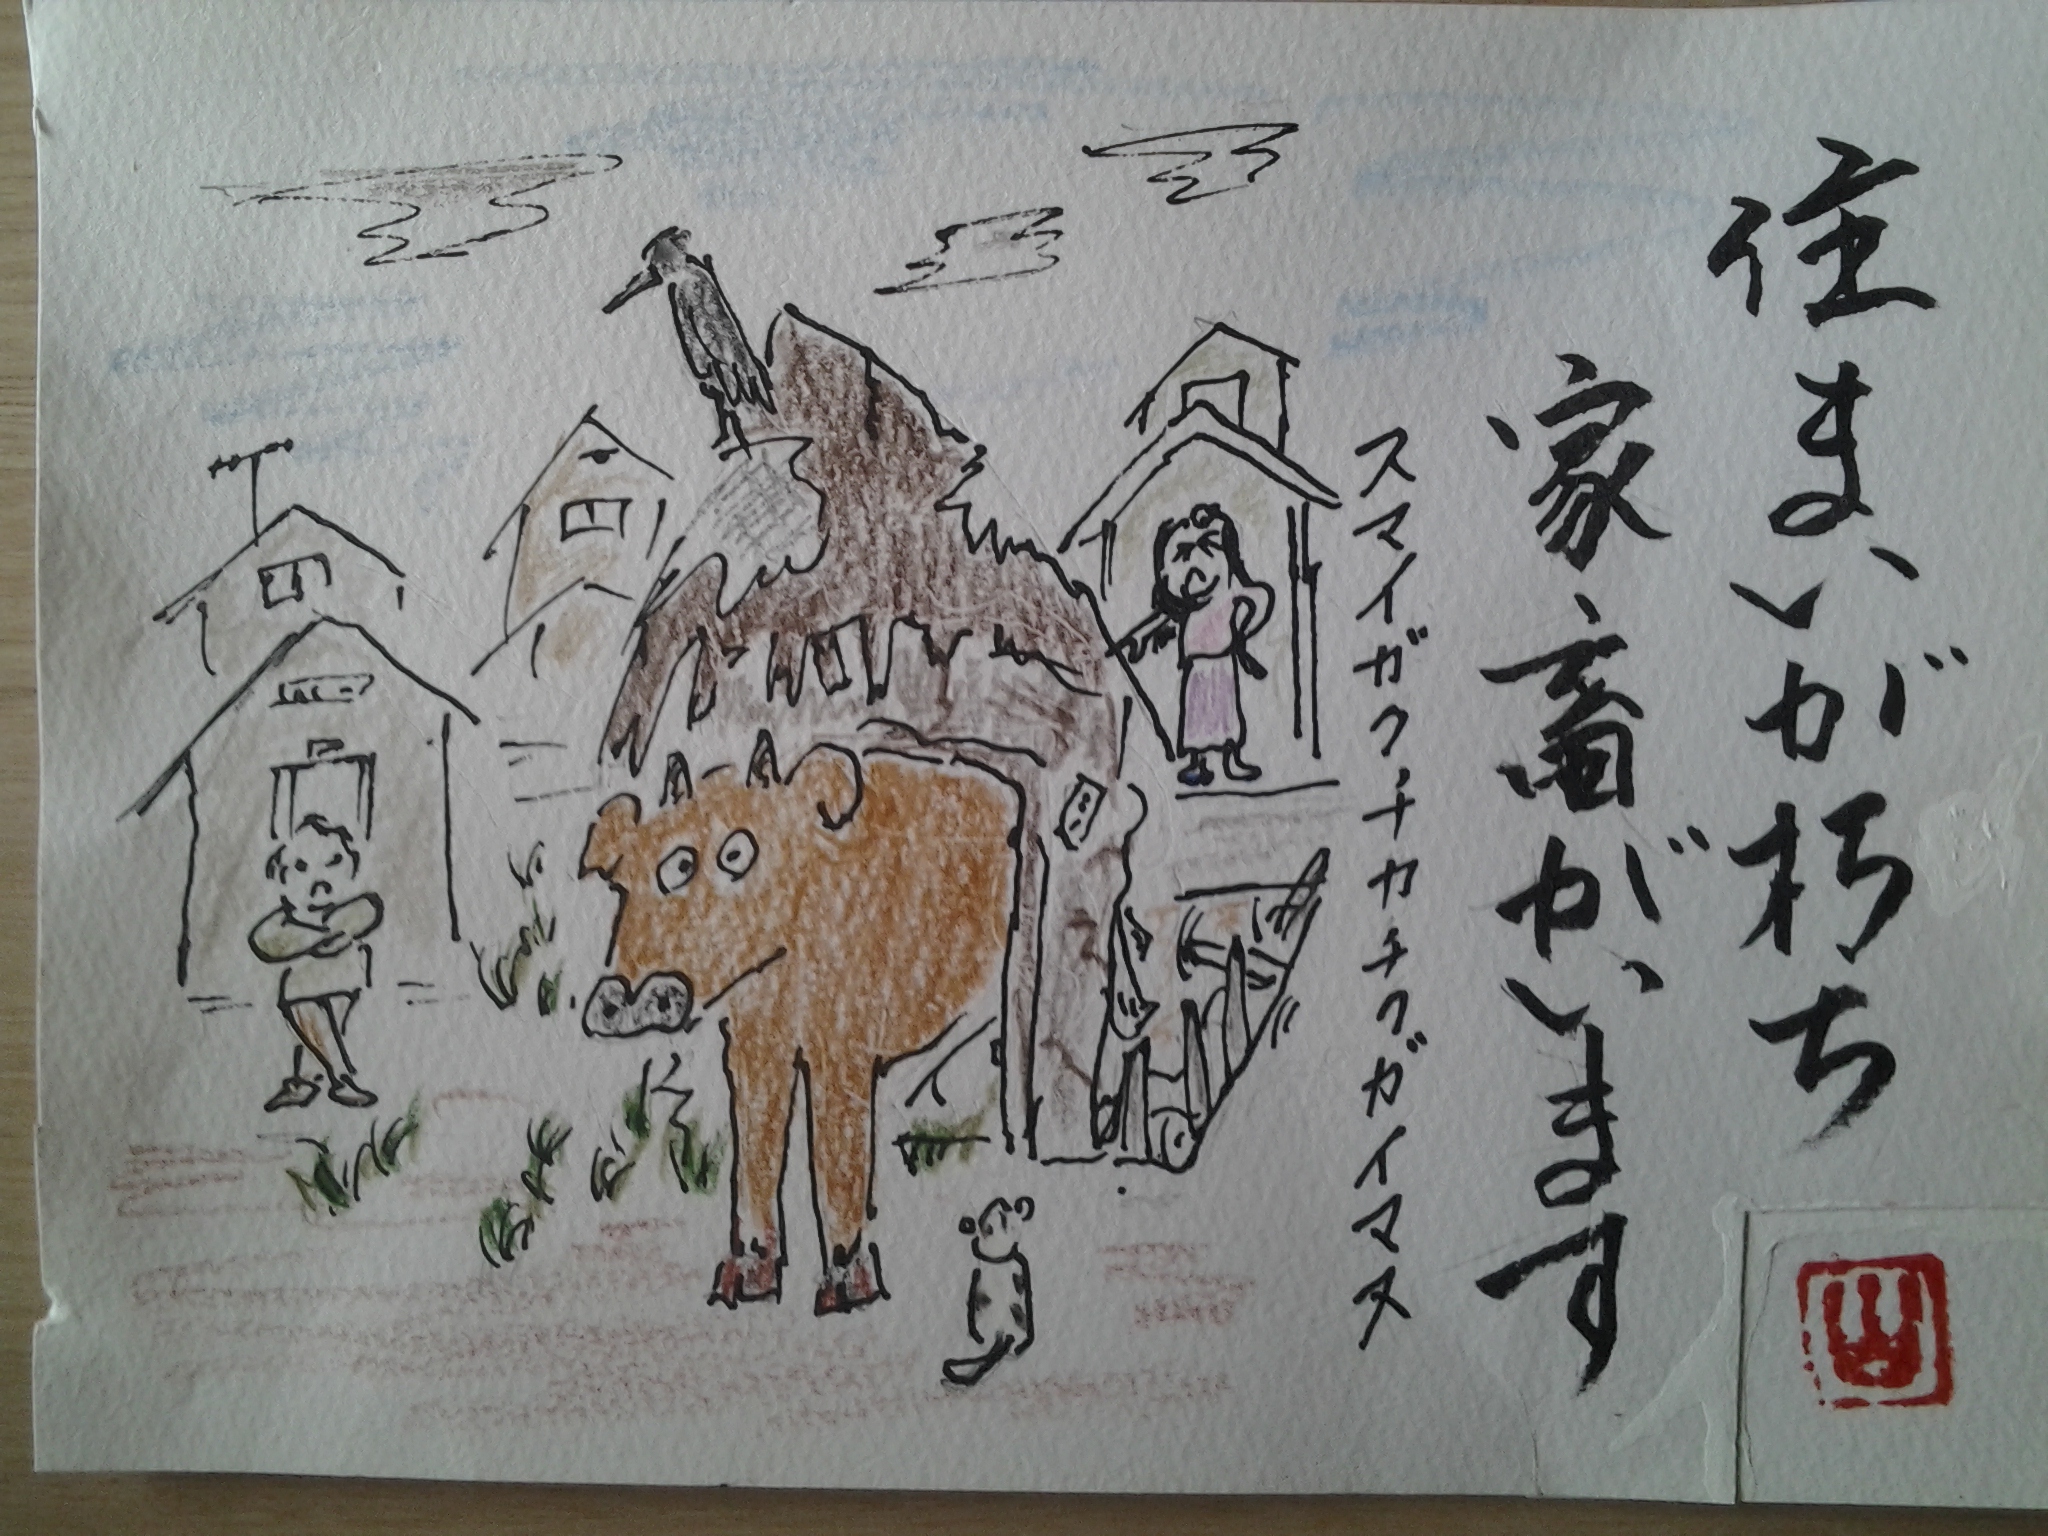 住まいが朽ち
家畜がいます
スマイガクチカチクガイマス